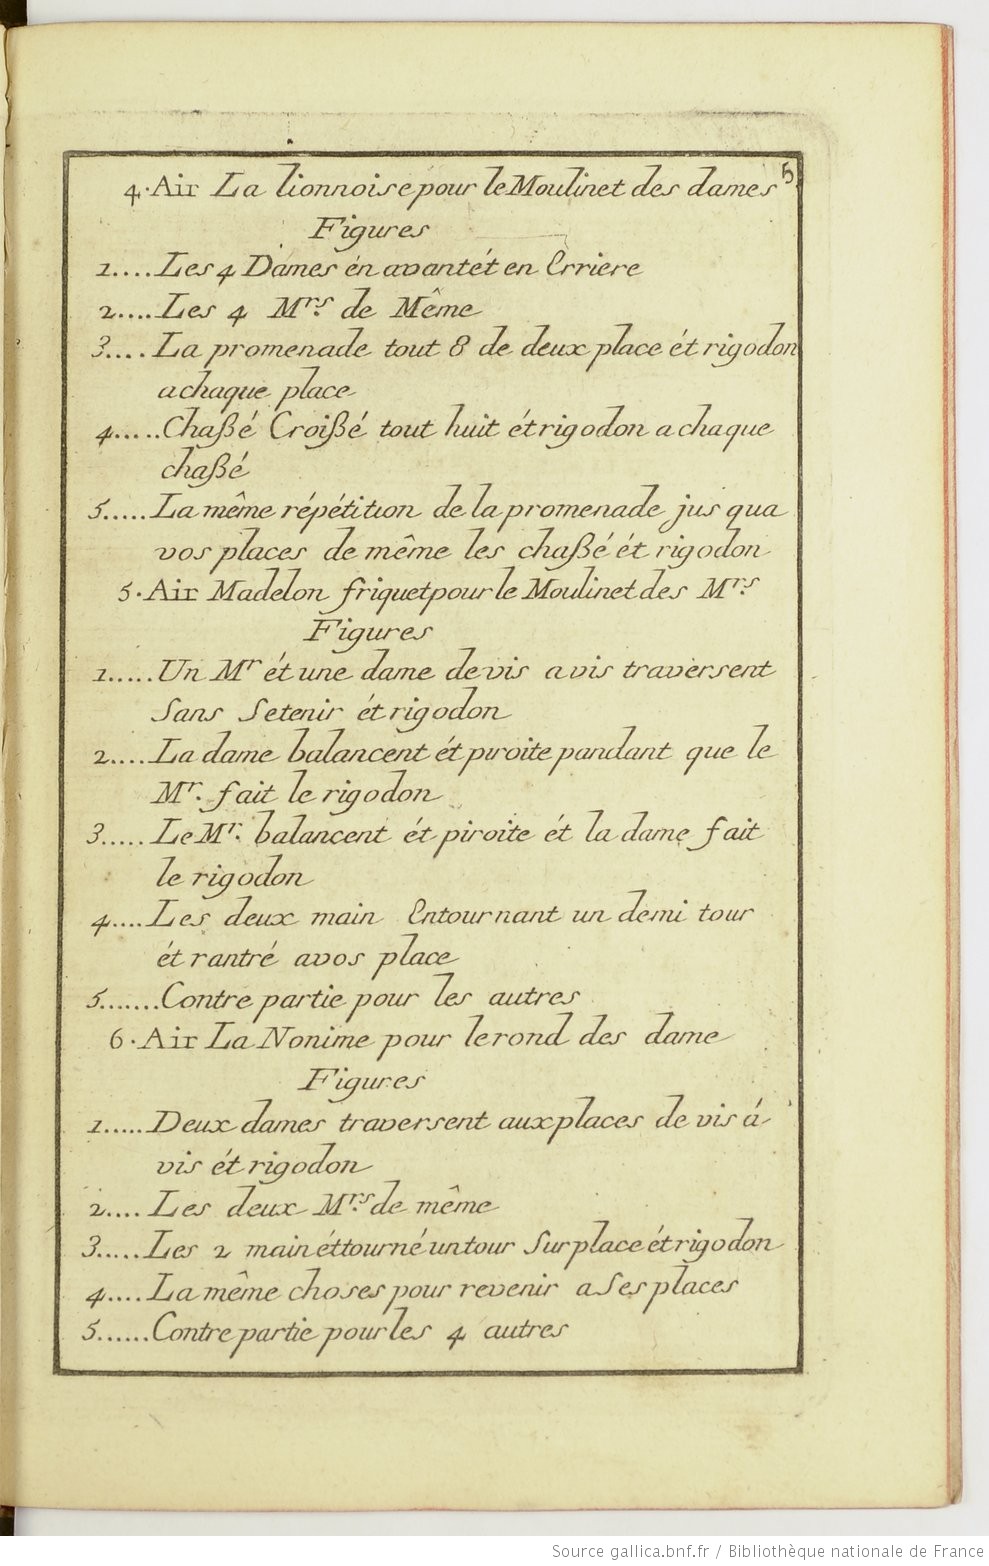 5
4. Air La lionnoise pour le Moulinet des dames
Figures
1.... Les 4 Dames én avant ét en Erriere
2.... Les 4 Mrs. de Même
3.... La promenade tout 8 de deux place ét rigodon
a chaque place
4..... Chaßé Croißé tout huit ét rigodon a chaque
chaßé
5..... La même répétition de la promenade jus qua
vos places de même les chaßé ét rigodon
5. Air Madelon friquet pour le Moulinet des Mrs.
Figures
1..... Un Mr ét une dame de vis a vis traversent
Sans Setenir ét rigodon
2.... La dame balancent ét piroite pandant que le
Mr. fait le rigodon
3..... Le Mr. balancent ét piroite ét la dame fait
le rigodon
4.... Les deux main Entournant un demi tour
ét rantré avos place
5....... Contre partie pour les autres
6. Air La Nonime pour le rond des dame
Figures
1..... Deux dames traversent aux places de vis á
vis ét rigodon
2.... Les deux Mrs. de même
3..... Les 2 main ét tourné un tour Sur place ét rigodon
4.... La même choses pour revenir a Ses places
5...... Contre partie pour les 4 autres
Source gallica.bnf.fr / Bibliothèque nationale de France